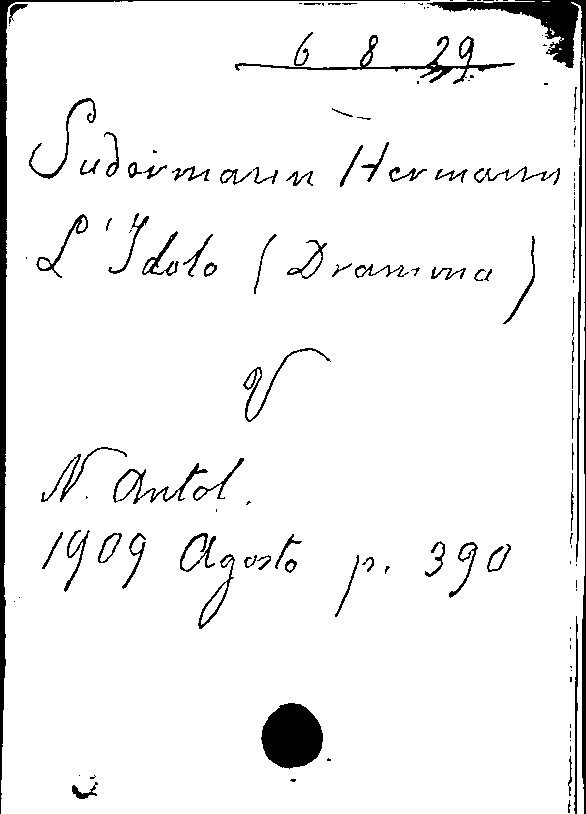 6 8 29
Sudermann Hermann
L'Idolo (Dramma)
V
N. Antol.
1909 Agosto p. 390